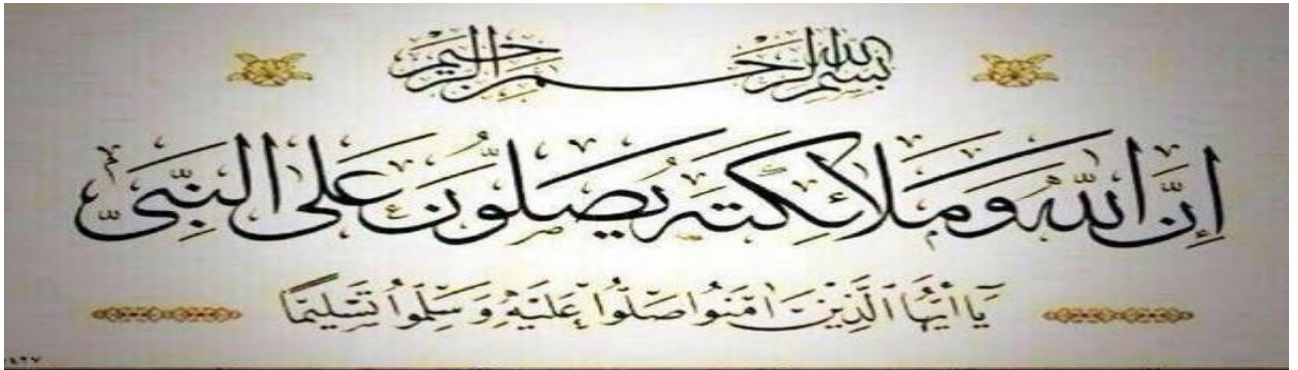 بسم الله الرحمن الرحيم
إِنَّ اللَّهَ وَمَلَائِكَتَهُ يُصَلُّونَ عَلَى النَّبِيِّ
يَا أَيُّهَا الَّذِينَ آمَنُوا صَلُّوا عَلَيْهِ وَسَلِّمُوا تَسْلِيمًا